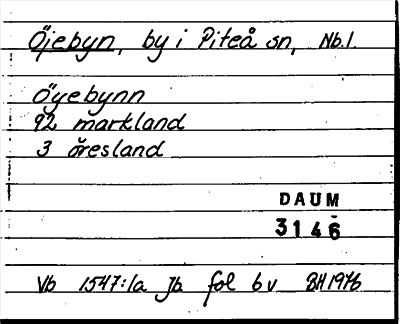 Öjebyn, by i Piteå sn, Nb.l.
Öyebynn
92 markland
3 öresland
DAUM
3146
Vb 1547:1a Jb fol 6v BH1976